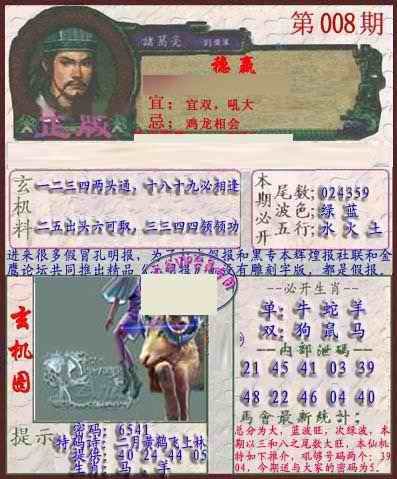 第008期
諸葛亮
劉伯溫
稳赢
宜: 宜双,吼大
忌: 鸡龙相会
正版
玄机料
一二三四两头通,十八十九必相逢
二五出头六可歌,三三四四领领功
本期必开
尾数:024359
波色:绿 蓝
五行:水 火 土
进来很多假冒孔明报,
和黑专本辉煌报社联和金
鹰论坛共同推出精品
有雕刻字版,都是假报.
玄机图
--必开生肖--
单:牛 蛇 羊
双:狗 鼠 马
--内部泄码--
21 45 41 03 39
48 22 46 04 40
马會最新統計:
总分为大,蓝波旺,次绿波,本
期以三和八之尾数大旺,本仙机
特如下推介,吼够号码两个:39
04,今期送与大家的密码为5.
提示
密码: 6541
特码诗: 二月黄鹤飞上林
提倍: 40 24 44 05
生肖: 马,羊